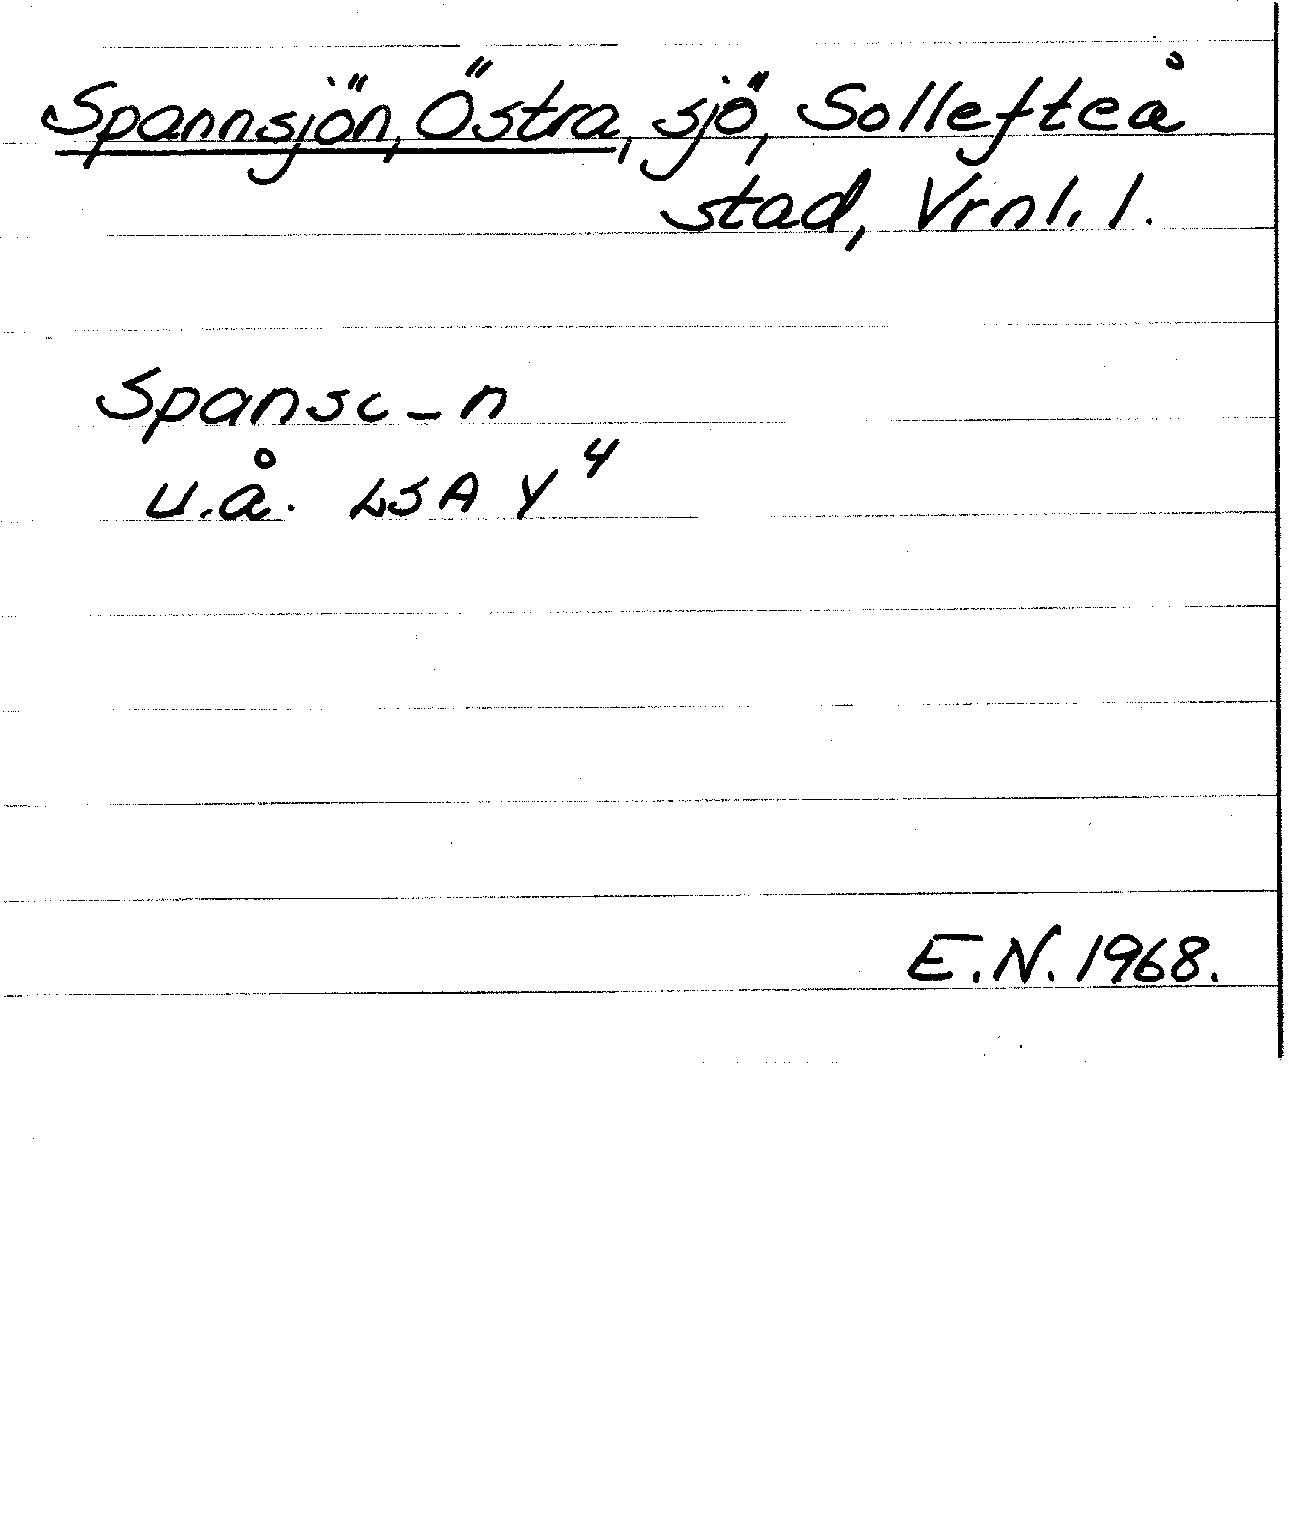 Spannsjön, Östra, sjö, Sollefteå
stad, Vrnl. l.
Spansc-n
u.å. LSA Y⁴
E.N. 1968.